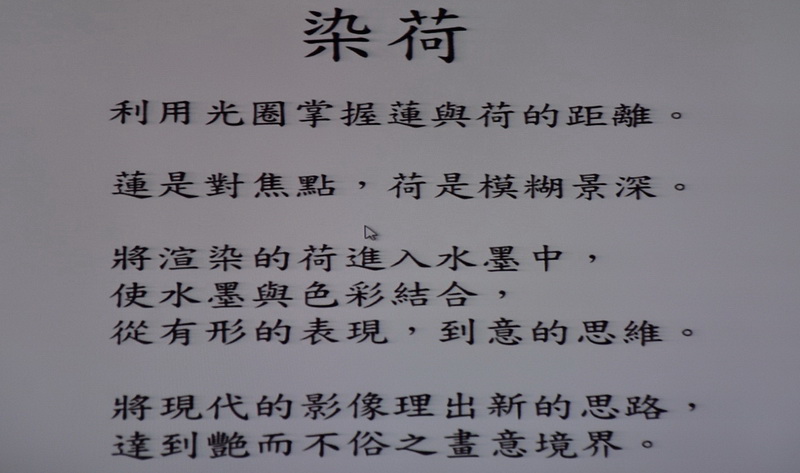 染荷
利用光圈掌握蓮與荷的距離。
蓮是對焦點，荷是模糊景深。
將渲染的荷進入水墨中，
使水墨與色彩結合，
從有形的表現，到意的思維。
將現代的影像理出新的思路，
達到艷而不俗之畫意境界。